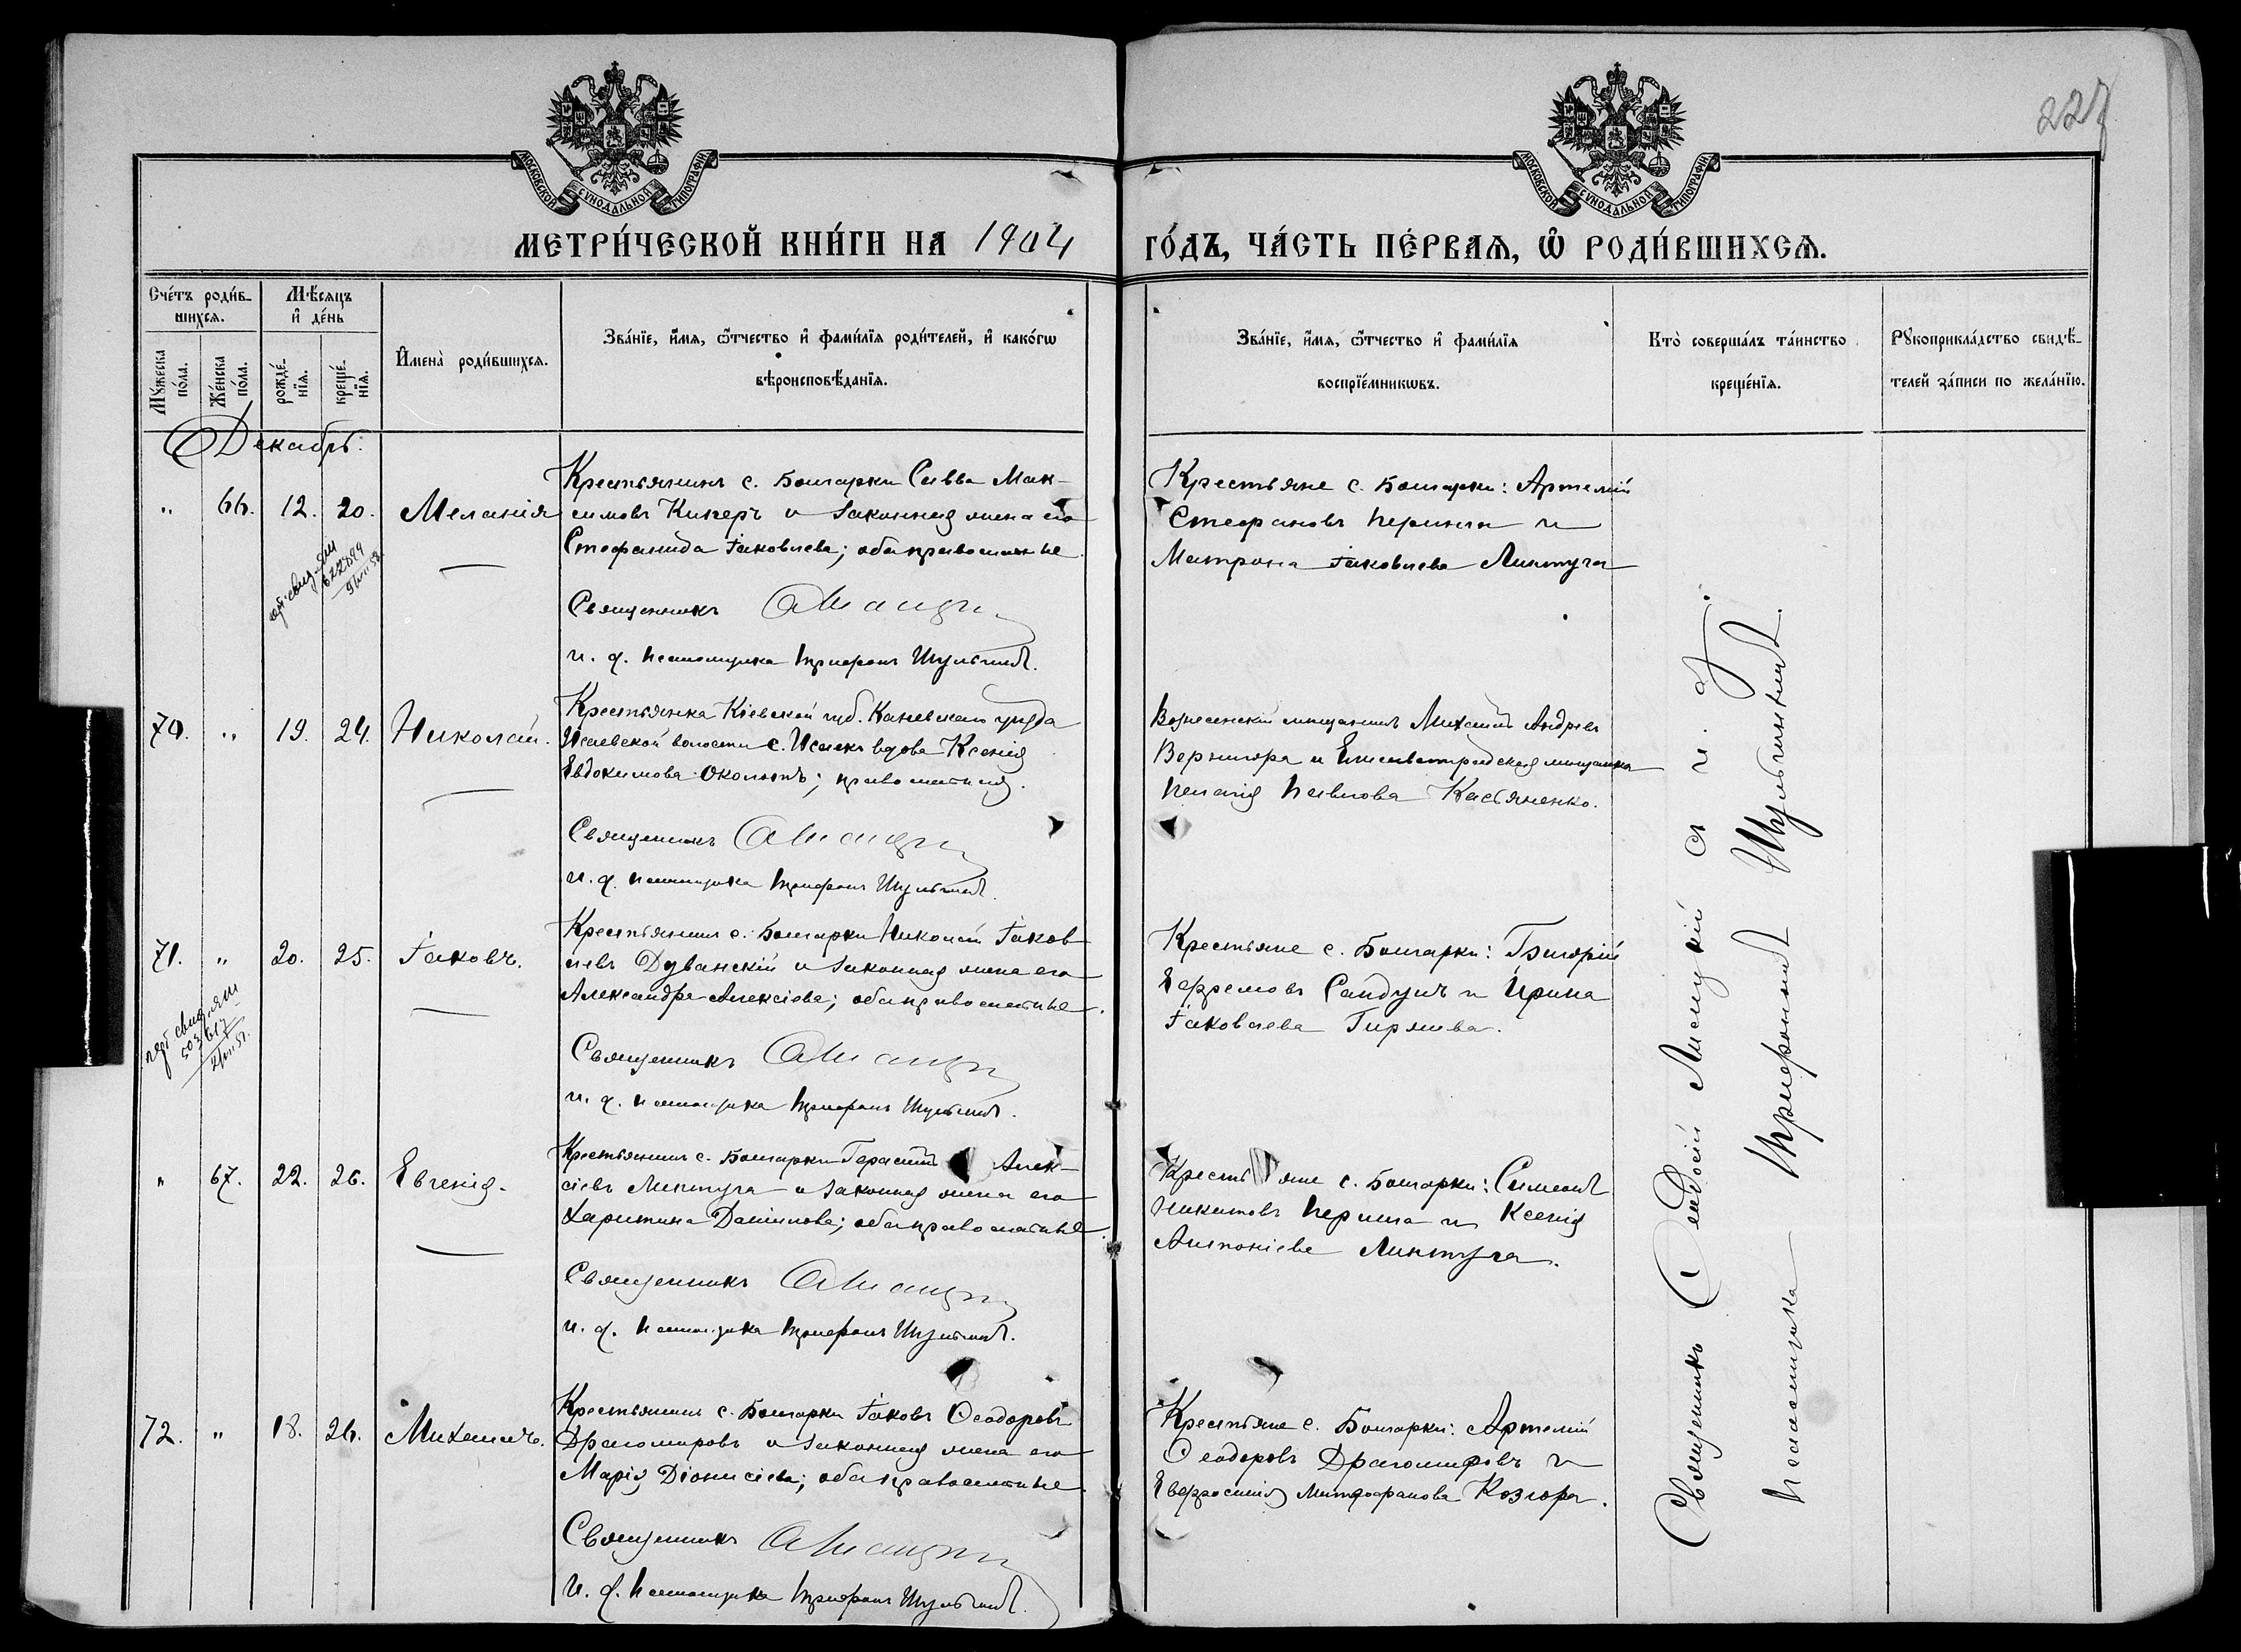 227
МОСКОВСКОЙ СУНОДАЛЬНОЙ ТИПОГРАФІИ
МОСКОВСКОЙ СУНОДАЛЬНОЙ ТИПОГРАФІИ
МЕТРИ́ЧЕСКОЙ КНИ́ГИ НА 1904 ГО́ДЪ, ЧА́СТЬ ПЕ́РВАѦ, Ѡ҆ РОДИ́ВШИХСѦ.
Сче́тъ роди́вшихсѧ.
Мꙋ́жеска по́ла.
Же́нска по́ла.
Мѣ́сѧцъ и҆ де́нь
рожде́нїѧ.
креще́нїѧ.
И҆мена̀ роди́вшихсѧ.
Зва́нїе, и҆́мѧ, ѻ҆́тчество и҆ фами́лїѧ роди́телей, и҆ како́гѡ
вѣроисповѣ́данїѧ.
Зва́нїе, и҆́мѧ, ѻ҆́тчество и҆ фами́лїѧ
воспрїе́мникѡвъ.
Кто̀ соверша́лъ та́инство
креще́нїѧ.
Рꙋкоприкла́дство свидѣ́-
телей за́писи по жела́нїю.
Декабрь.
„ 66. 12. 20. Меланія
Крестьянинъ с. Болгарки Савва Мак-
симовъ Кикеръ и законная жена его
Стефанида Іаковлева; оба православные
Священникъ
и. д. псаломщика Трифонъ Шульгинъ.
Крестьяне с. Болгарки: Артемій
Стефановъ Пержила и
Матрона Іаковлева Линтуга
70. „ 19. 24. Николай.
Крестьянка Кіевской губ. Каневскаго уѣзда
волости с. вдова Ксенія
Евдокимова православная.
Священникъ
и. д. псаломщика Трифонъ Шульгинъ.
Вознесенскій мещанинъ Михаилъ Андреевъ
Вернигора и Елисаветградская мещанка
Пелагія Павлова Касьяненко.
71. „ 20. 25. Іаковъ.
Крестьянинъ с. Болгарки Николай Іаков-
левъ Дуванскій и законная жена его
Александра Алексіева; оба православные.
Священникъ
и. д. псаломщика Трифонъ Шульгинъ.
Крестьяне с. Болгарки: Григорій
Ефремовъ Сандулъ и Ирина
Іаковлева Гиржева.
„ 67. 22. 26. Евгенія.
Крестьянинъ с. Болгарки Герасимъ Алек-
сіевъ Линтуга и законная жена его
Харитина Даніилова; оба православные.
Священникъ
и. д. псаломщика Трифонъ Шульгинъ.
Крестьяне с. Болгарки: Симеонъ
Никитовъ и Ксенія
Антоніева Линтуга.
72. „ 18. 26. Михаилъ.
Крестьянинъ с. Болгарки Іаковъ Ѳеодоровъ
Драгомировъ и законная жена его
Марія Діонисіева; оба православные.
Священникъ
И. д. псаломщика Трифонъ Шульгинъ.
Крестьяне с. Болгарки: Артемій
Ѳеодоровъ Драгомировъ и
Евфросинія Митрофанова Козгора.
Священникъ и. д.
псаломщика Трифонъ Шульгинъ.